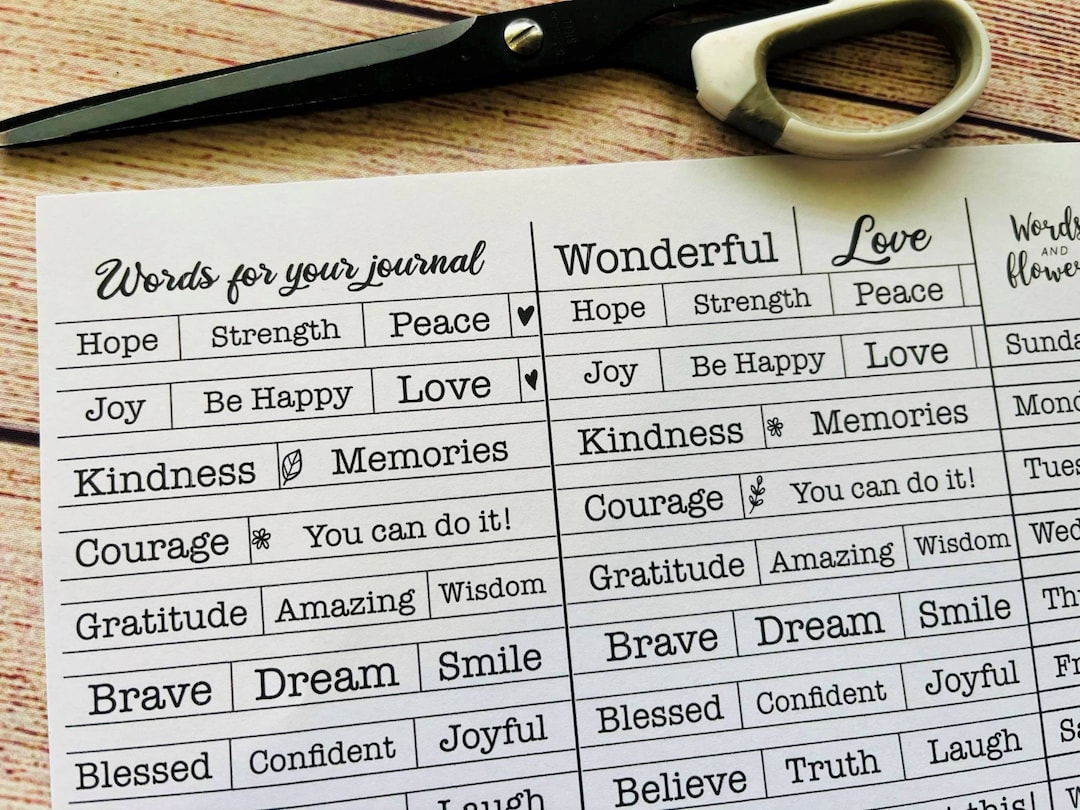 Words for your journal
Hope Strength Peace
Joy Be Happy Love
Kindness Memories
Courage You can do it!
Gratitude Amazing Wisdom
Brave Dream Smile
Blessed Confident Joyful
Laugh
Wonderful Love
Hope Strength Peace
Joy Be Happy Love
Kindness Memories
Courage You can do it!
Gratitude Amazing Wisdom
Brave Dream Smile
Blessed Confident Joyful
Believe Truth Laugh
this!
Words
AND
flowe
Sunda
Mond
Tues
Wed
Th
Fr
Sa